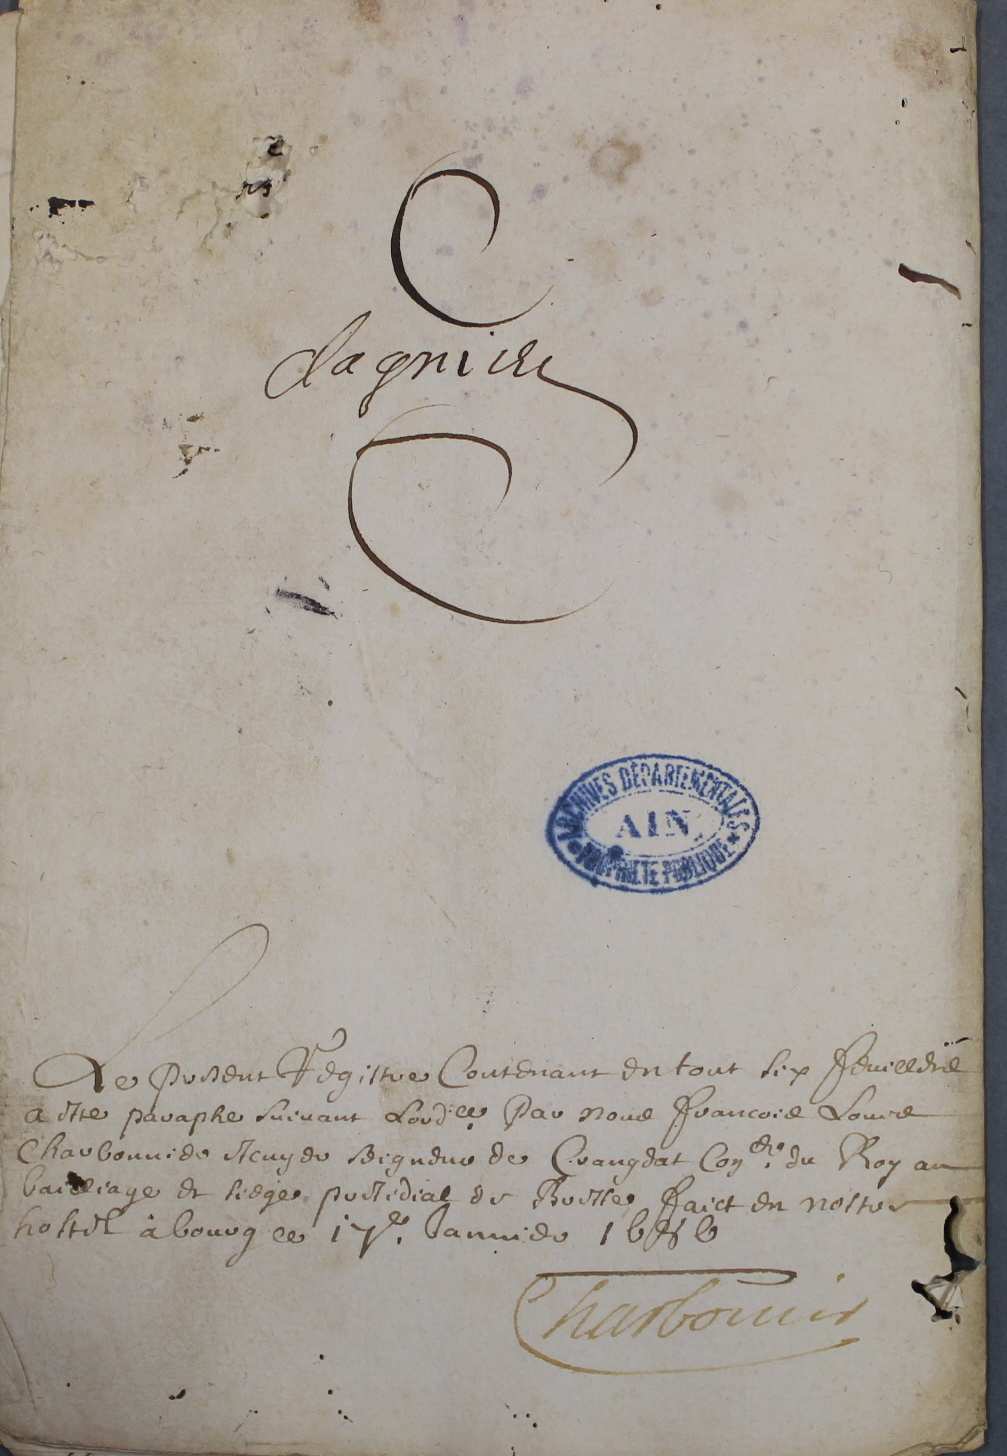 Lagnieu
ARCHIVES DÉPARTEMENTALES
AIN
PROPRIÉTÉ PUBLIQUE
Le present Registre Contenant en tout six feuilletz
a este paraphe suivant Lord.ce Par nous Francois Louis
Charbonnier Escuyer Seigneur de Crangeat Con.er du Roy au
bailliage et siege presidial de Bresse faict en nostre
hostel à bourg ce 17e. Janvier 1686
Charbonnier